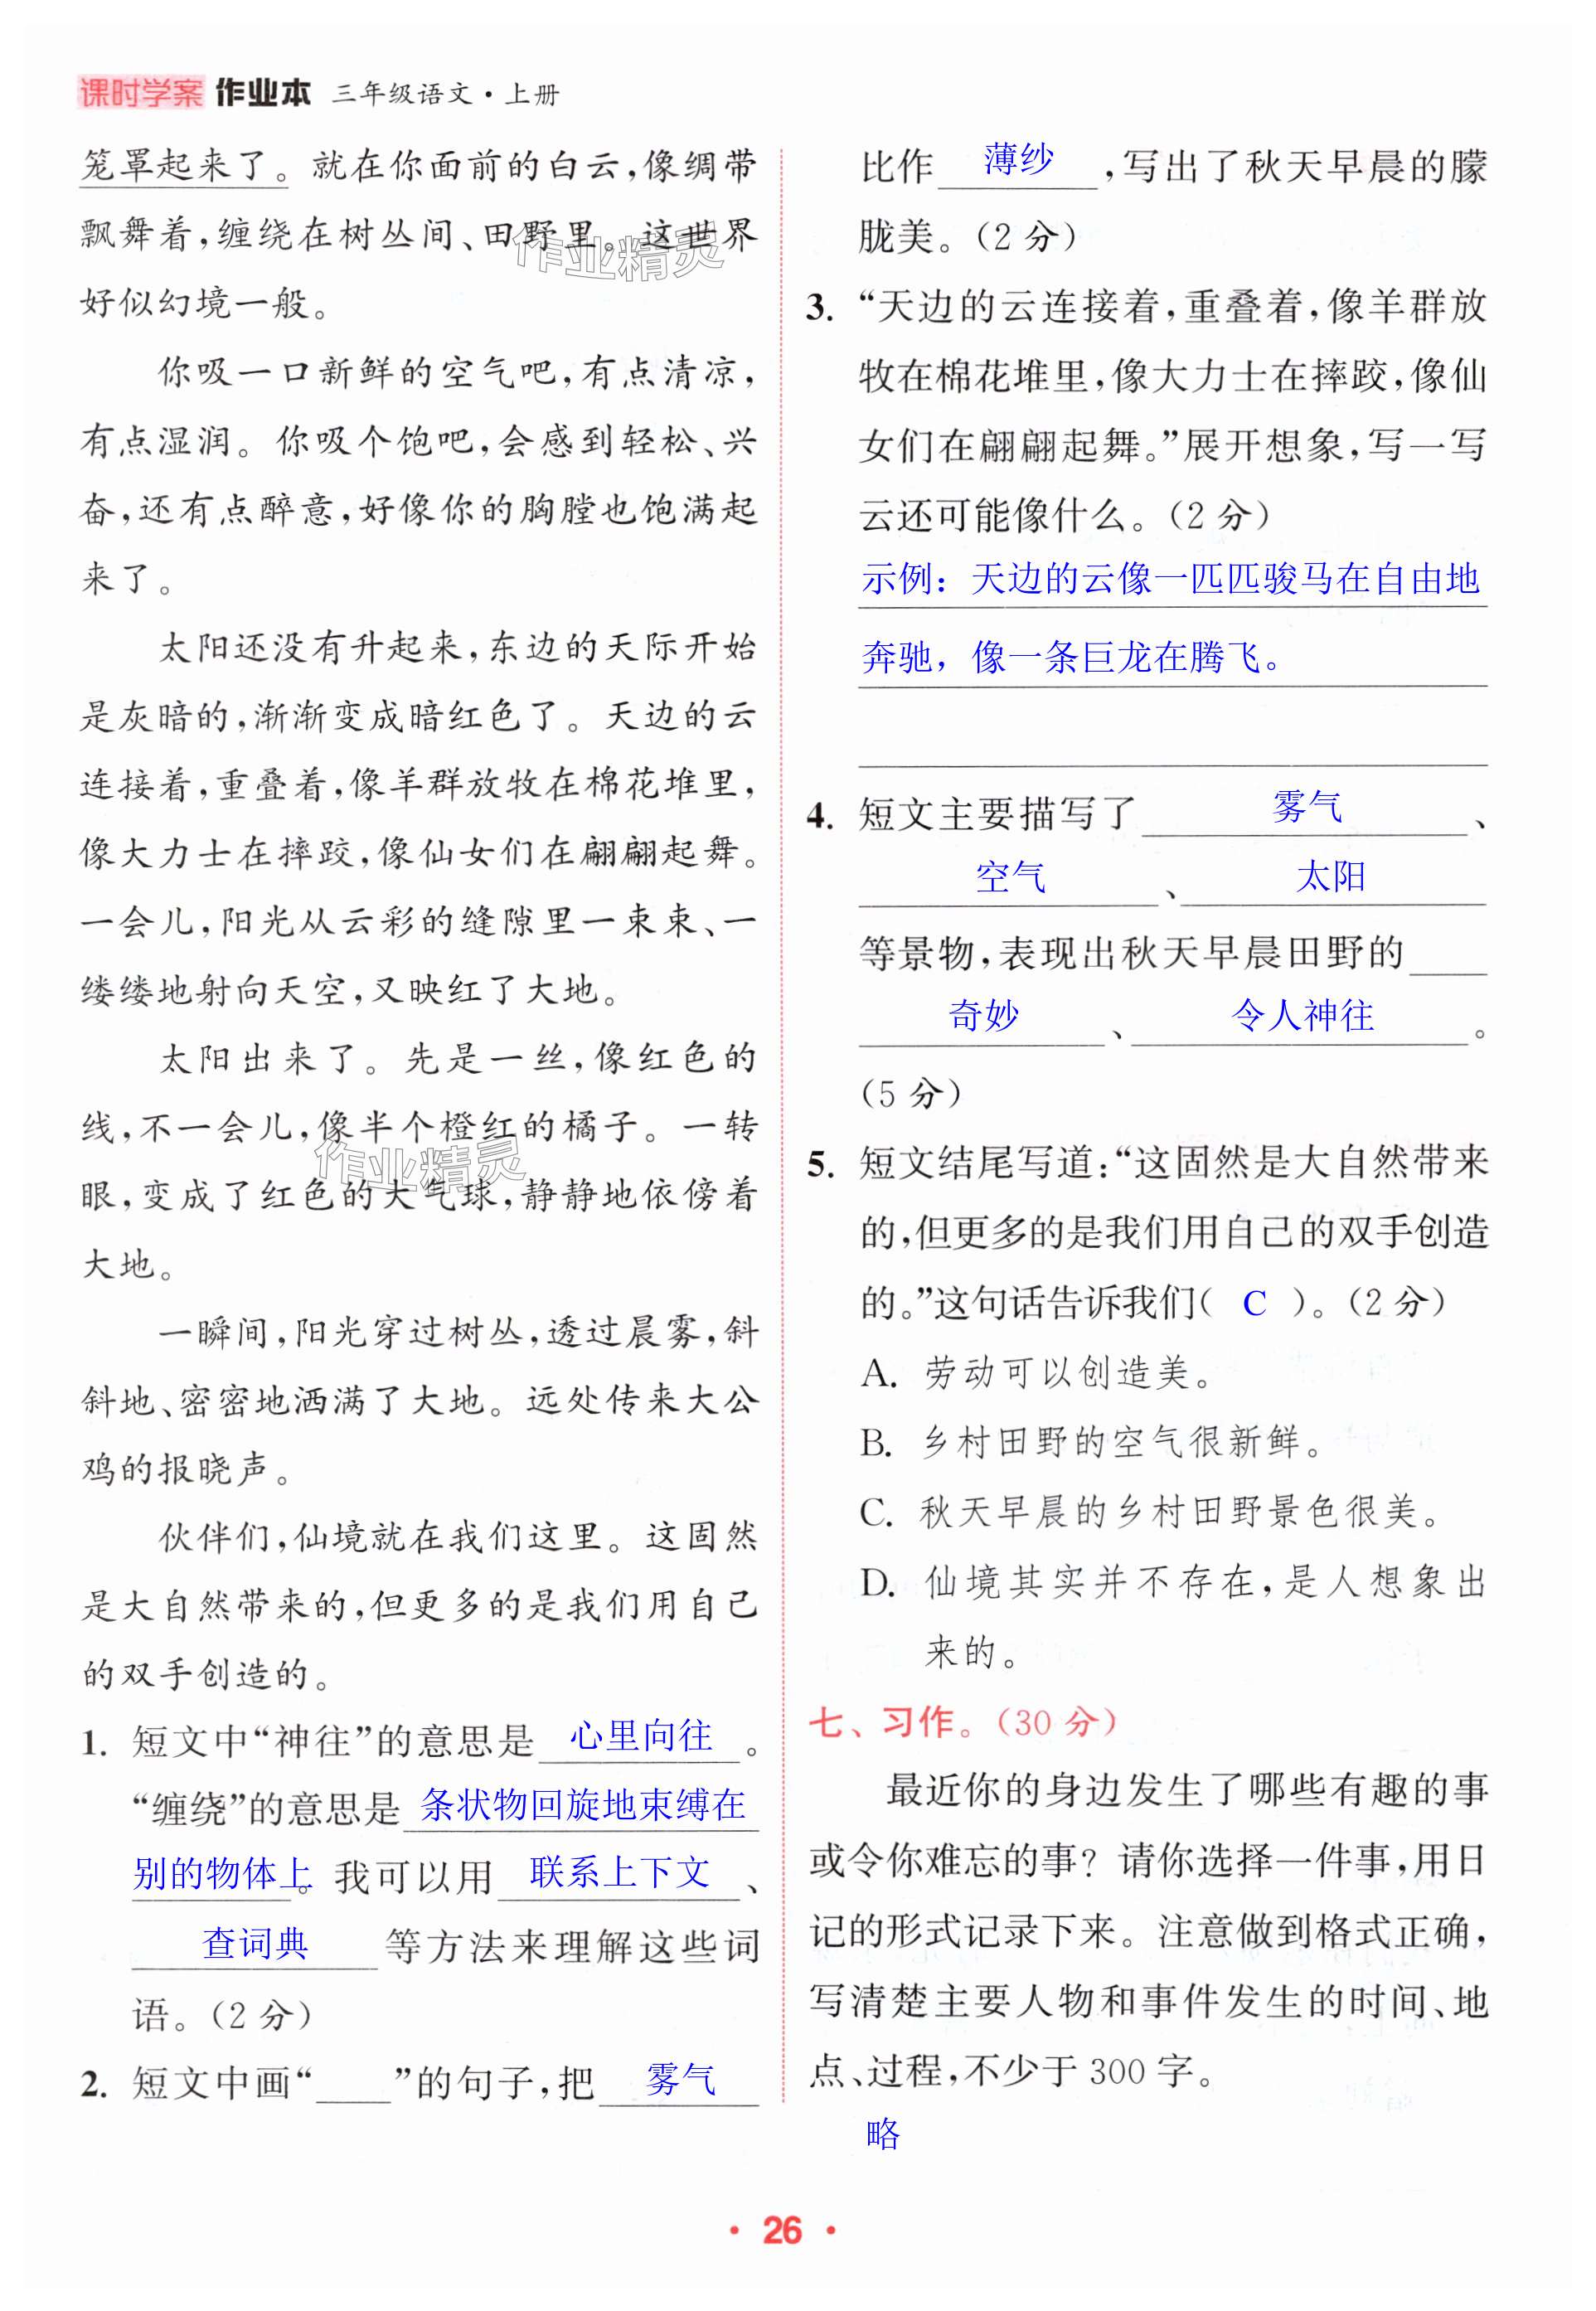 课时学案 作业本 三年级语文·上册
笼罩起来了。就在你面前的白云,像绸带
飘舞着,缠绕在树丛间、田野里。这世界
好似幻境一般。
你吸一口新鲜的空气吧,有点清凉,
有点湿润。你吸个饱吧,会感到轻松、兴
奋,还有点醉意,好像你的胸膛也饱满起
来了。
太阳还没有升起来,东边的天际开始
是灰暗的,渐渐变成暗红色了。天边的云
连接着,重叠着,像羊群放牧在棉花堆里,
像大力士在摔跤,像仙女们在翩翩起舞。
一会儿,阳光从云彩的缝隙里一束束、一
缕缕地射向天空,又映红了大地。
太阳出来了。先是一丝,像红色的
线,不一会儿,像半个橙红的橘子。一转
眼,变成了红色的大气球,静静地依傍着
大地。
一瞬间,阳光穿过树丛,透过晨雾,斜
斜地、密密地洒满了大地。远处传来大公
鸡的报晓声。
伙伴们,仙境就在我们这里。这固然
是大自然带来的,但更多的是我们用自己
的双手创造的。
1. 短文中“神往”的意思是 心里向往 。
“缠绕”的意思是 条状物回旋地束缚在
别的物体上 。我可以用 联系上下文 、
查词典 等方法来理解这些词
语。(2 分)
2. 短文中画“____”的句子,把 雾气
比作 薄纱 ,写出了秋天早晨的朦
胧美。(2 分)
3. “天边的云连接着,重叠着,像羊群放
牧在棉花堆里,像大力士在摔跤,像仙
女们在翩翩起舞。”展开想象,写一写
云还可能像什么。(2 分)
示例：天边的云像一匹匹骏马在自由地
奔驰，像一条巨龙在腾飞。
4. 短文主要描写了 雾气 、
空气 、 太阳
等景物,表现出秋天早晨田野的____
奇妙 、 令人神往 。
(5 分)
5. 短文结尾写道:“这固然是大自然带来
的,但更多的是我们用自己的双手创造
的。”这句话告诉我们( C )。(2 分)
A. 劳动可以创造美。
B. 乡村田野的空气很新鲜。
C. 秋天早晨的乡村田野景色很美。
D. 仙境其实并不存在,是人想象出
来的。
七、习作。(30 分)
最近你的身边发生了哪些有趣的事
或令你难忘的事? 请你选择一件事,用日
记的形式记录下来。注意做到格式正确,
写清楚主要人物和事件发生的时间、地
点、过程,不少于 300 字。
略
· 26 ·
作业精灵
作业精灵